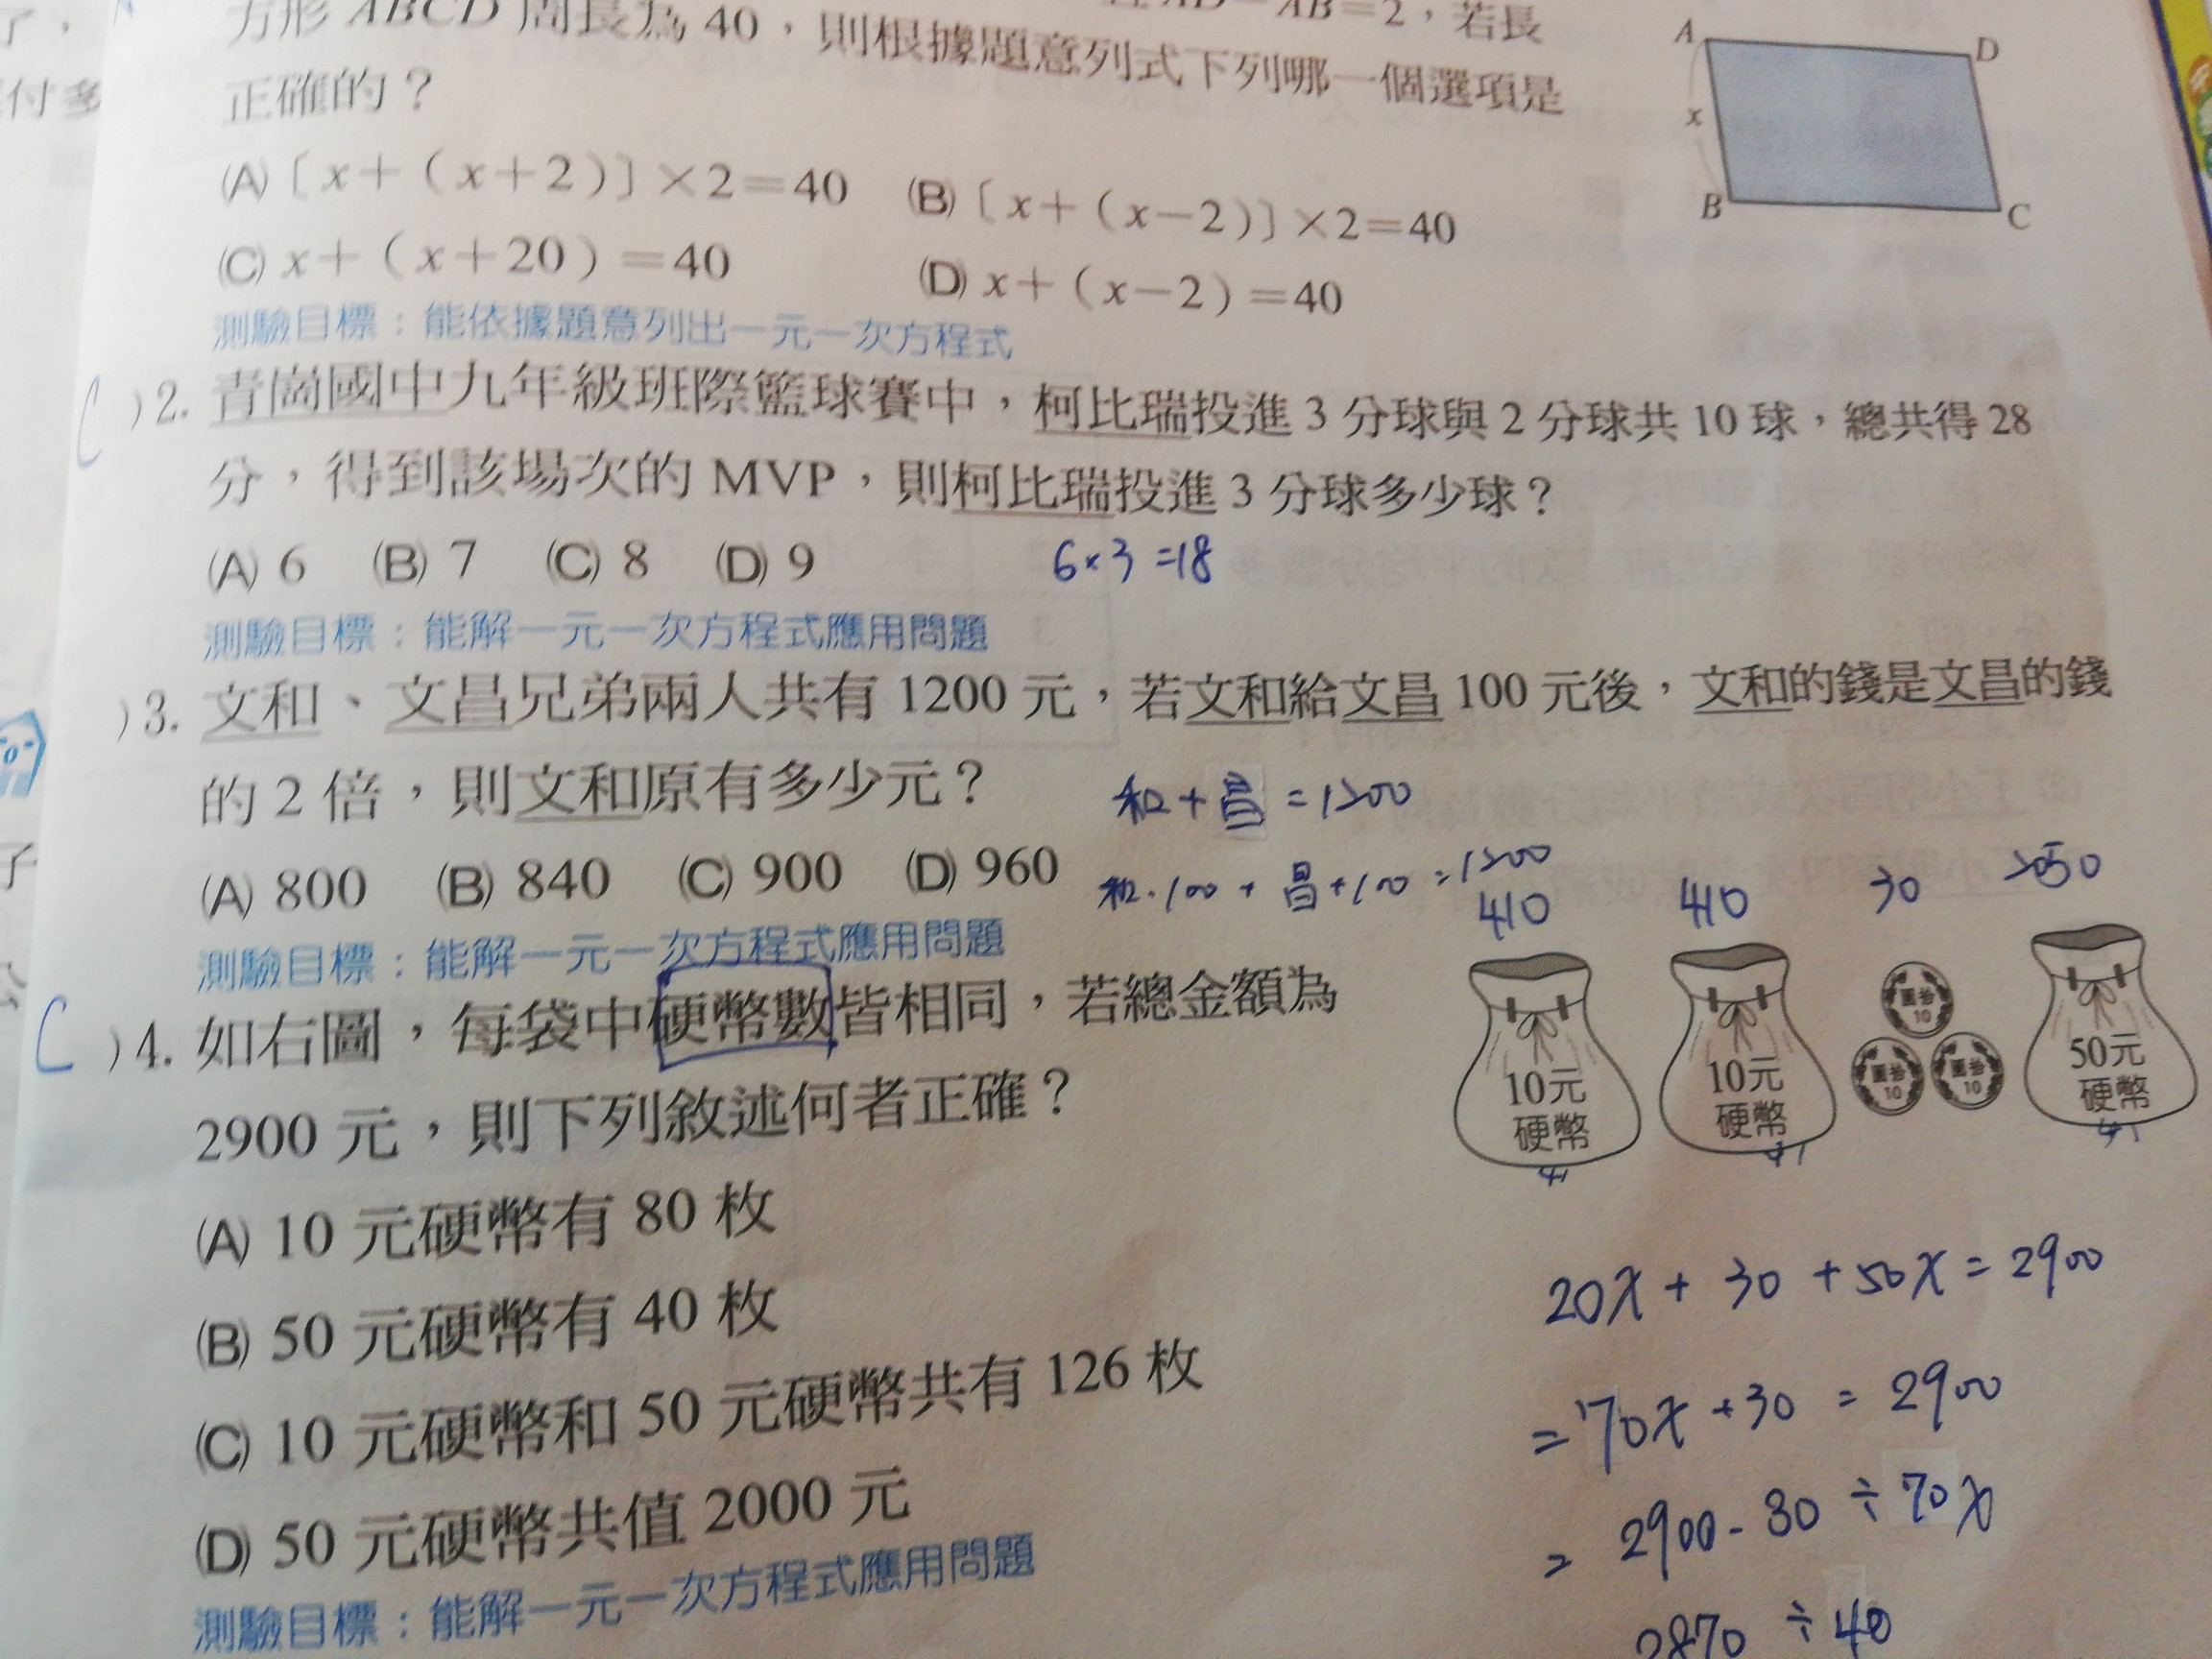 了，
方形 ABCD 周長為 40，則根據題意列式下列哪一個選項是
AB＝2，若長
付多
正確的？
(A)〔x＋（x＋2）〕×2＝40 (B)〔x＋（x－2）〕×2＝40
(C) x＋（x＋20）＝40 (D) x＋（x－2）＝40
A
D
x
B
C
測驗目標：能依據題意列出一元一次方程式
C )2. 青崗國中九年級班際籃球賽中，柯比瑞投進 3 分球與 2 分球共 10 球，總共得 28
分，得到該場次的 MVP，則柯比瑞投進 3 分球多少球？
(A) 6 (B) 7 (C) 8 (D) 9
6×3=18
測驗目標：能解一元一次方程式應用問題
)3. 文和、文昌兄弟兩人共有 1200 元，若文和給文昌 100 元後，文和的錢是文昌的錢
的 2 倍，則文和原有多少元？
和+昌=1200
(A) 800 (B) 840 (C) 900 (D) 960
和-100+昌+100=1200
測驗目標：能解一元一次方程式應用問題
子
C )4. 如右圖，每袋中硬幣數皆相同，若總金額為
2900 元，則下列敘述何者正確？
410
410
30
2050
10元
硬幣
41
10元
硬幣
41
10
10
10
50元
硬幣
41
(A) 10 元硬幣有 80 枚
(B) 50 元硬幣有 40 枚
(C) 10 元硬幣和 50 元硬幣共有 126 枚
(D) 50 元硬幣共值 2000 元
測驗目標：能解一元一次方程式應用問題
20x+30+50x=2900
=70x+30=2900
=2900-30÷70x
2870÷40